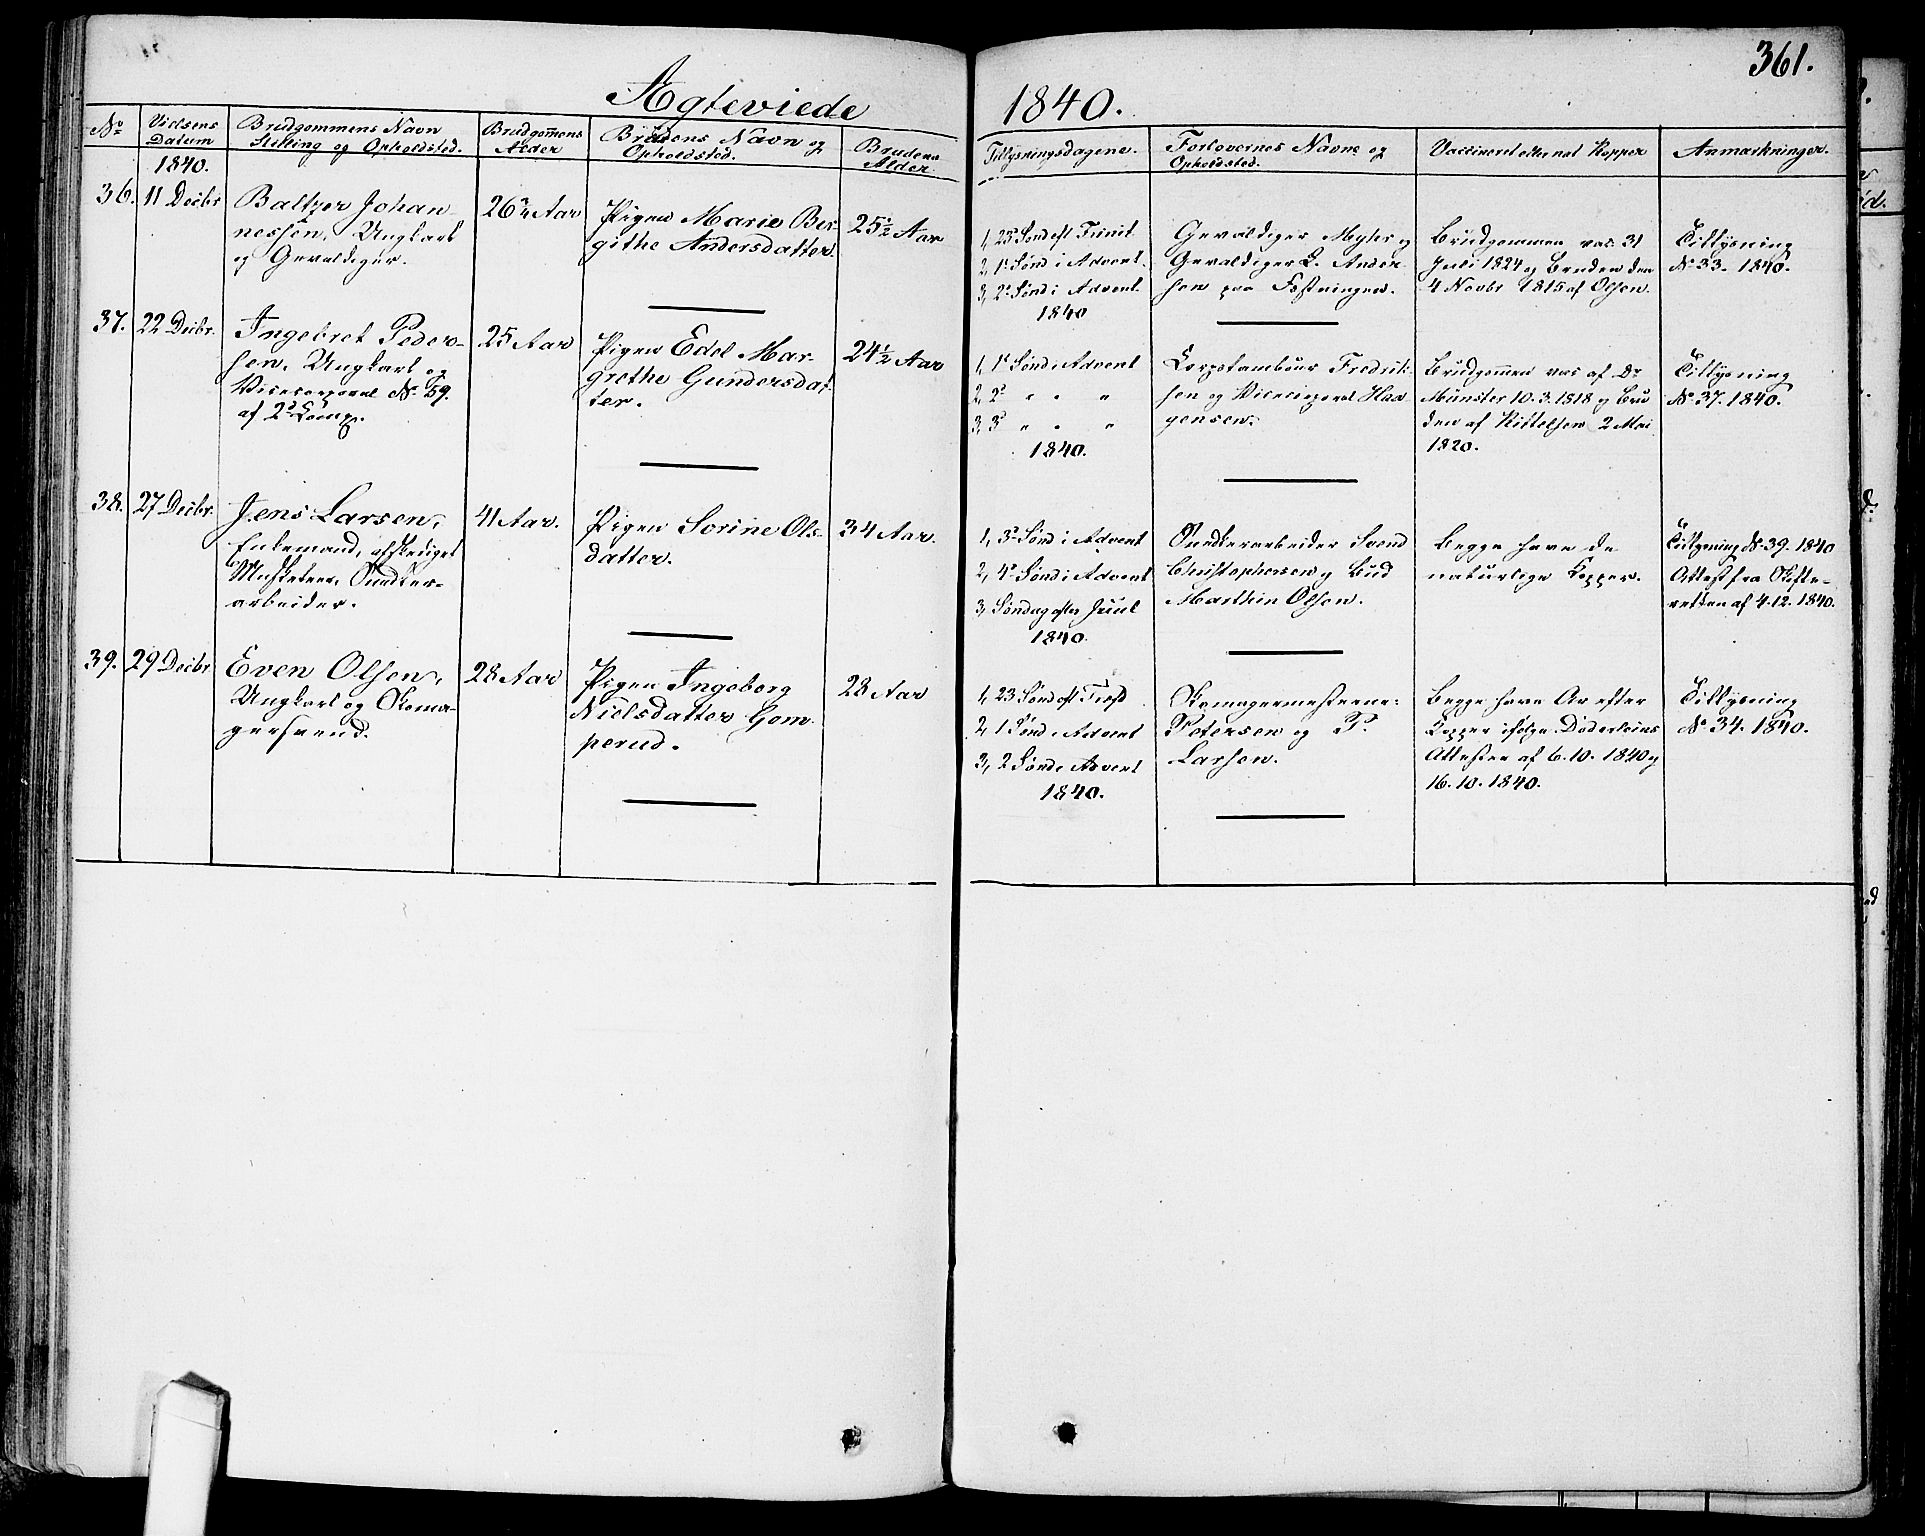 361.
Ægteviede 1840.
No
Vielsens Datum
Brudgommens Navn
Stilling og Opholdsted.
Brudgommens Alder
Brudens Navn og
Opholdsted.
Brudens Alder
Tillysningsdagene.
Forlovernes Navne og
Opholdsted.
Vaccineret eller nat. Kopper
Anmærkninger.
1840.
36.
11 Decbr
Baltzer Johan-
nessen, Ungkarl
og Gevaldiger.
26 3/4 Aar
Pigen Marie Ber-
githe Andersdatter.
25 1/2 Aar
1, 23 Sønd eft Trinit.
2, 1 Sønd i Advent.
3, 2 Sønd i Advent.
1840
Gevaldiger Myler og
Gevaldiger L. Ander-
sen paa Fæstningen.
Brudgommen vac. 31
Juli 1824 og Bruden den
4 Novbr 1815 af Olsen.
Tillysning
No 33. 1840.
37.
22 Decbr.
Ingebret Peder-
sen, Ungkarl og
Vicecorporal No 59.
af 2d Comp.
25 Aar
Pigen Edel Mar-
grethe Gundersdat-
ter.
24 1/2 Aar
1, 1 Sønd i Advent
2, 2 " " "
3, 3 " " "
1840.
Corpstambour Fredrik-
sen og Vicecorporal Haa-
gensen.
Brudgommen vac af Dr
Münster 10.3.1818 og Bru
den af Kittelsen 2 Mai
1820.
Tillysning
No 37. 1840.
38.
27 Decbr.
Jens Larsen,
Enkemand, afskediget
Musketeer, Tundker-
arbeider.
41 Aar.
Pigen Sorine Ols-
datter.
34 Aar.
1, 3 Sønd i Advent
2, 4 Sønd i Advent
3, Søndag efter Juul
1840.
Christophersen og Bud
Marthin Olsen.
Begge have de
naturlige Kopper.
Tillysning No 39. 1840
Attest fra Skifte-
retten af 4.12.1840.
39.
29 Decbr
Even Olsen,
Ungkarl og Skoma-
gersvend.
28 Aar
Pigen Ingeborg
Nielsdatter Gom-
perud.
28 Aar
1, 23 Sønd eft Tref
2, 1 Sønd i Advent
3, 2 Sønd i Advent
1840.
Skomagermesterne
Petersen og P.
Larsen.
Begge have Ar efter
Kopper ifølge Døderleins
Attester af 6.10.1840 og
16.10.1840.
Tillysning
No 34. 1840.